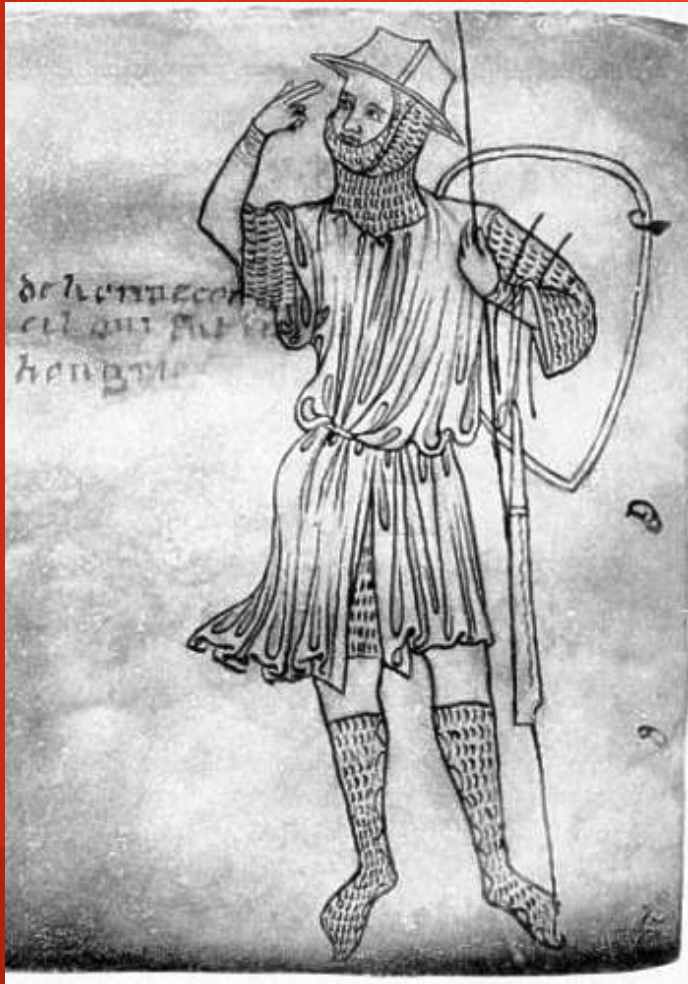 de honnecor
cil qui fut en
hongrie